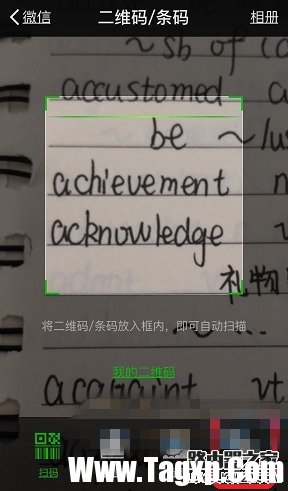 微信 二维码/条码 相册
~sb of (
accustomed a
be ~/us
achievement n
acknowledge v
礼物
将二维码/条码放入框内，即可自动扫描
~...
我的二维码
acquaint vt
扫码
路由器之家
Www.Tagxp.Com